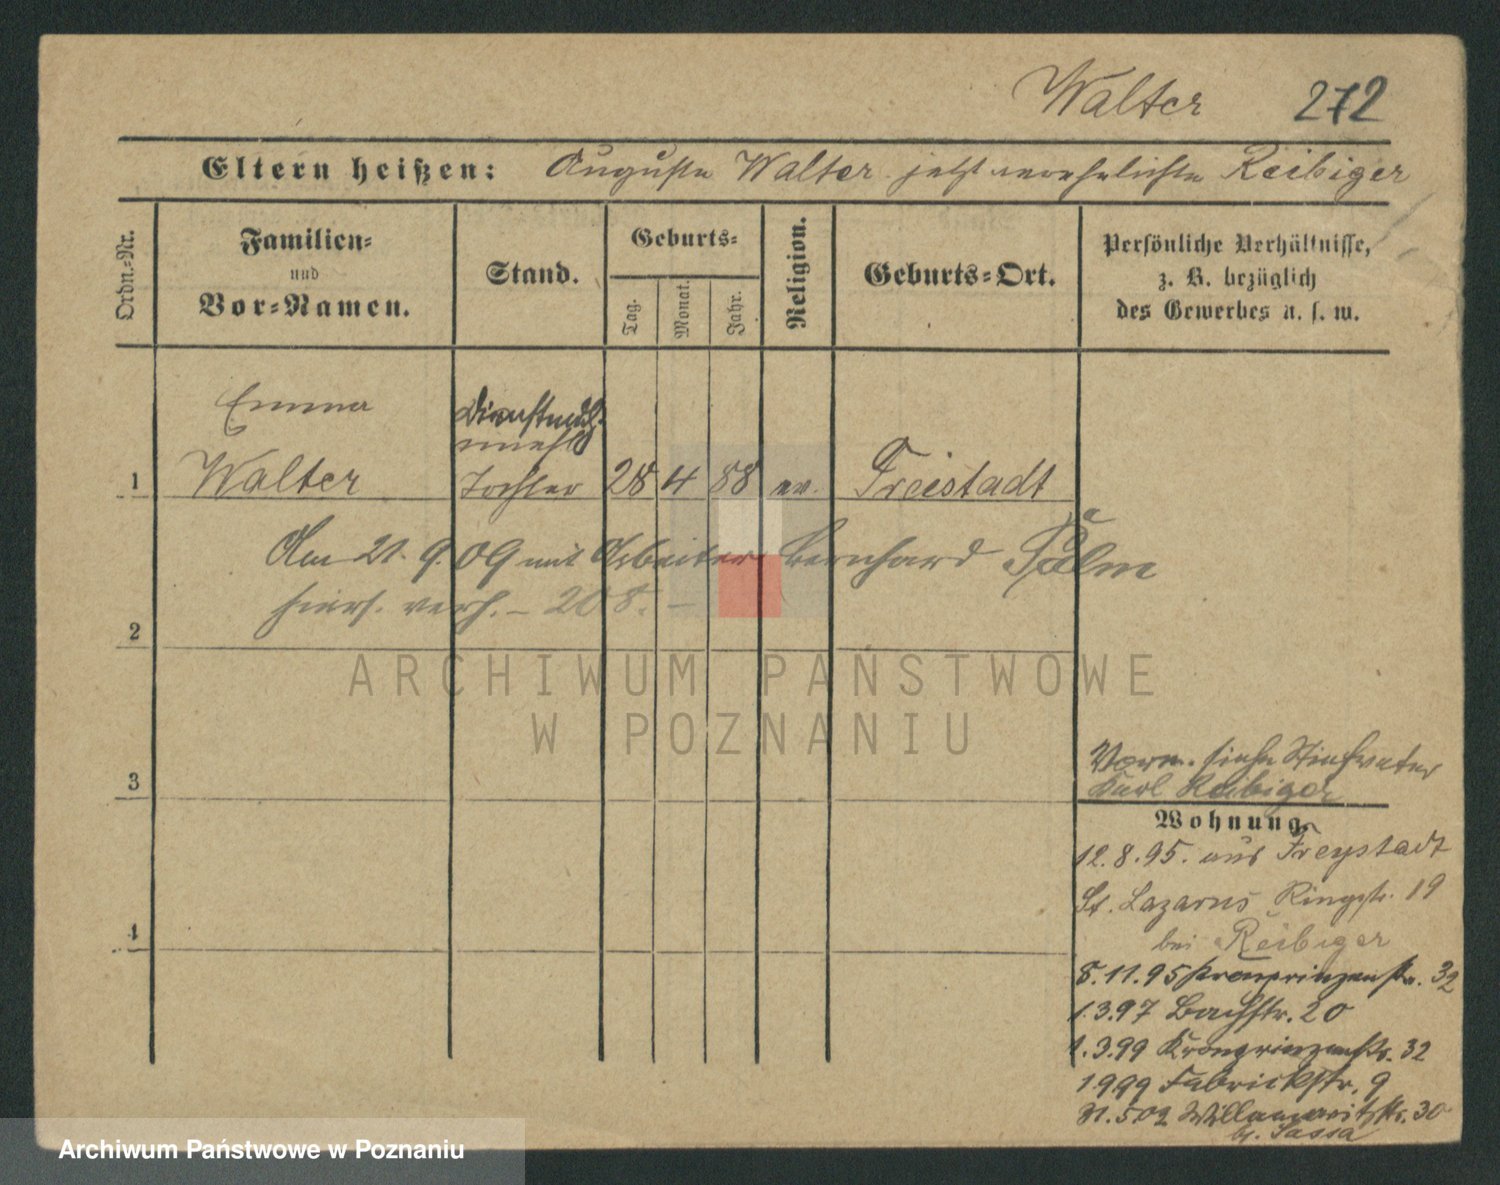 Walter 272
Eltern heißen: Auguste Walter jetzt verehelichte Reibiger
Ordn.-Nr.
Familien-
und
Vor-Namen.
Stand.
Geburts-
Tag.
Monat.
Jahr.
Religion.
Geburts-Ort.
Persönliche Verhältnisse,
z. B. bezüglich
des Gewerbes u. s. w.
Emma
1 Walter Tochter 28 4 88 ev. Freistadt
Am 21. 9. 09 mit Arbeiter Bernhard Palm
hiers. verh. – 208. –
2
ARCHIWUM PAŃSTWOWE
W POZNANIU
3
Vorm. siehe Stiefvater
Karl Reibiger
Wohnung.
12.8.95. aus Freystadt
St. Lazarus Ringstr. 19
bei Reibiger
4
8.11.95 Kronprinzenstr. 32
1.3.97 Bachstr. 20
1.3.99 Kronprinzenstr. 32
1999 Fabrickstr. 9
30
Archiwum Państwowe w Poznaniu